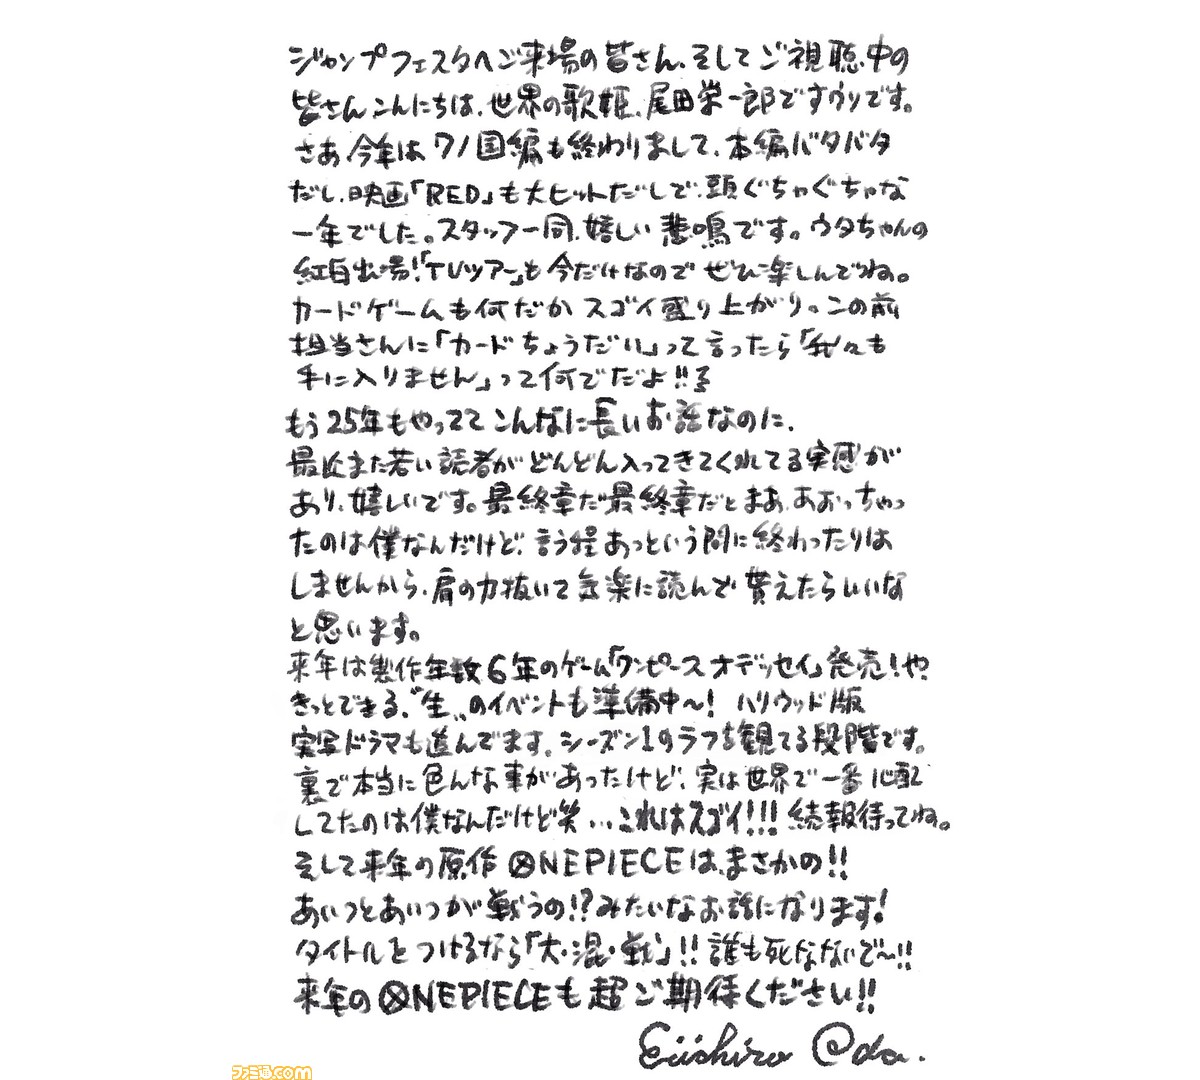 ジャンプフェスタへご来場の皆さん、そしてご視聴中の
皆さんこんにちは、世界の歌姫、尾田栄一郎ですウソです。
さあ今年はワノ国編も終わりまして、本編バタバタ
だし、映画「RED」も大ヒットだしで、頭ぐちゃぐちゃな
一年でした。スタッフ一同、嬉しい悲鳴です。ウタちゃんの
紅白出場!「TVツアー」も今だけなのでぜひ楽しんでね。
カードゲームも何だかスゴイ盛り上がり。この前
担当さんに「カードちょうだい」って言ったら「我々も
手に入りません」って何でだよ!!
もう25年もやっててこんなに長いお話なのに、
最近また若い読者がどんどん入ってきてくれてる実感が
あり、嬉しいです。最終章だ最終章だとまあ、あおっちゃっ
たのは僕なんだけど、言う程あっという間に終わったりは
しませんから、肩の力抜いて気楽に読んで貰えたらいいな
と思います。
来年は製作年数6年のゲーム「ワンピースオデッセイ」発売!や
きっとできる、"生"のイベントも準備中〜! ハリウッド版
実写ドラマも進んでます。シーズン1のラフを観てる段階です。
裏で本当に色んな事があったけど、実は世界で一番心配
してたのは僕なんだけど笑...これはスゴイ!!!続報待ってね。
そして来年の原作ONE PIECEは、まさかの!!
あいつとあいつが戦うの!?みたいなお話になります!
タイトルをつけるなら「大・混・戦」!!誰も死なないで〜!!
来年のONE PIECEも超ご期待ください!!
Eiichiro Oda.
ファミ通.com